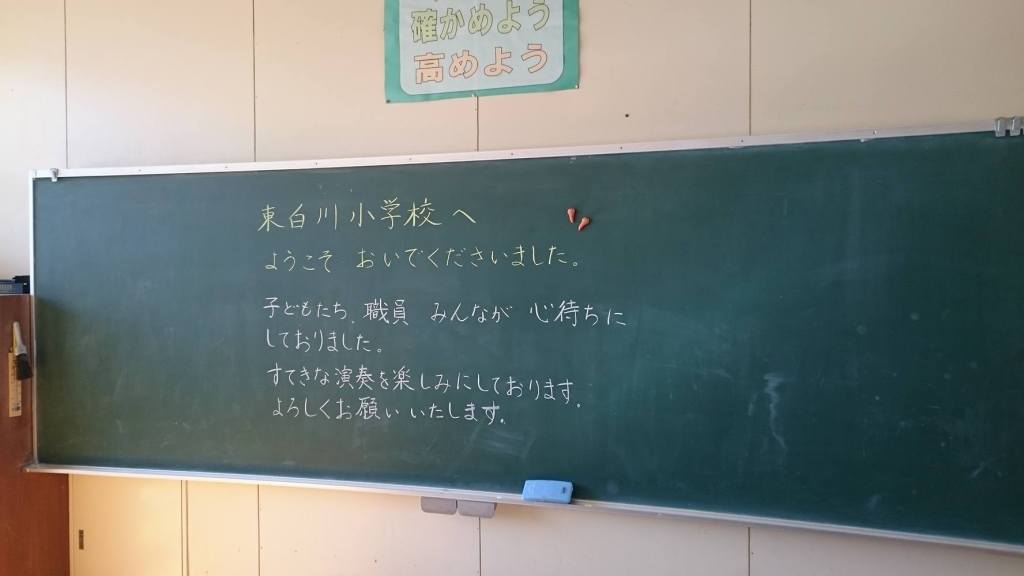 確かめよう
高めよう
東白川小学校へ
ようこそ おいでくださいました。
子どもたち、職員 みんなが 心待ちに
しておりました。
すてきな演奏を楽しみにしております。
よろしくお願いいたします。